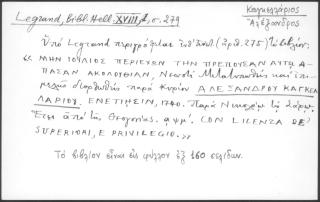 Legrand, Bibl. Hell. XVIII, σ. 279
Καγκελλάριος
Ἀλέξανδρος
Ὑπὸ Legrand περιγράφεται (ἀρ. 275) τὸ βιβλίον:
« ΜΗΝ ΙΟΥΛΙΟΣ ΠΕΡΙΕΧΩΝ ΤΗΝ ΠΡΕΠΟΥΣΑΝ ΑΥΤΩ Α-
ΠΑΣΑΝ ΑΚΟΛΟΥΘΙΑΝ, Νεωστὶ Μετατυπωθεὶς καὶ ἐπι-
μελῶς διορθωθεὶς παρὰ Κυρίου ΑΛΕΞΑΝΔΡΟΥ ΚΑΓΚΕΛ
ΛΑΡΙΟΥ. ΕΝΕΤΙΗΣΙΝ, 1740. Παρὰ Νικολάῳ τῷ Σάρῳ.
Ἔτει ἀπὸ τῆς Θεογονίας. αψμ΄. CON LICENZA DE'
SUPERIORI, E PRIVILEGIO. »
Τὸ βιβλίον εἶναι εἰς φύλλον ἐξ 160 σελίδων.